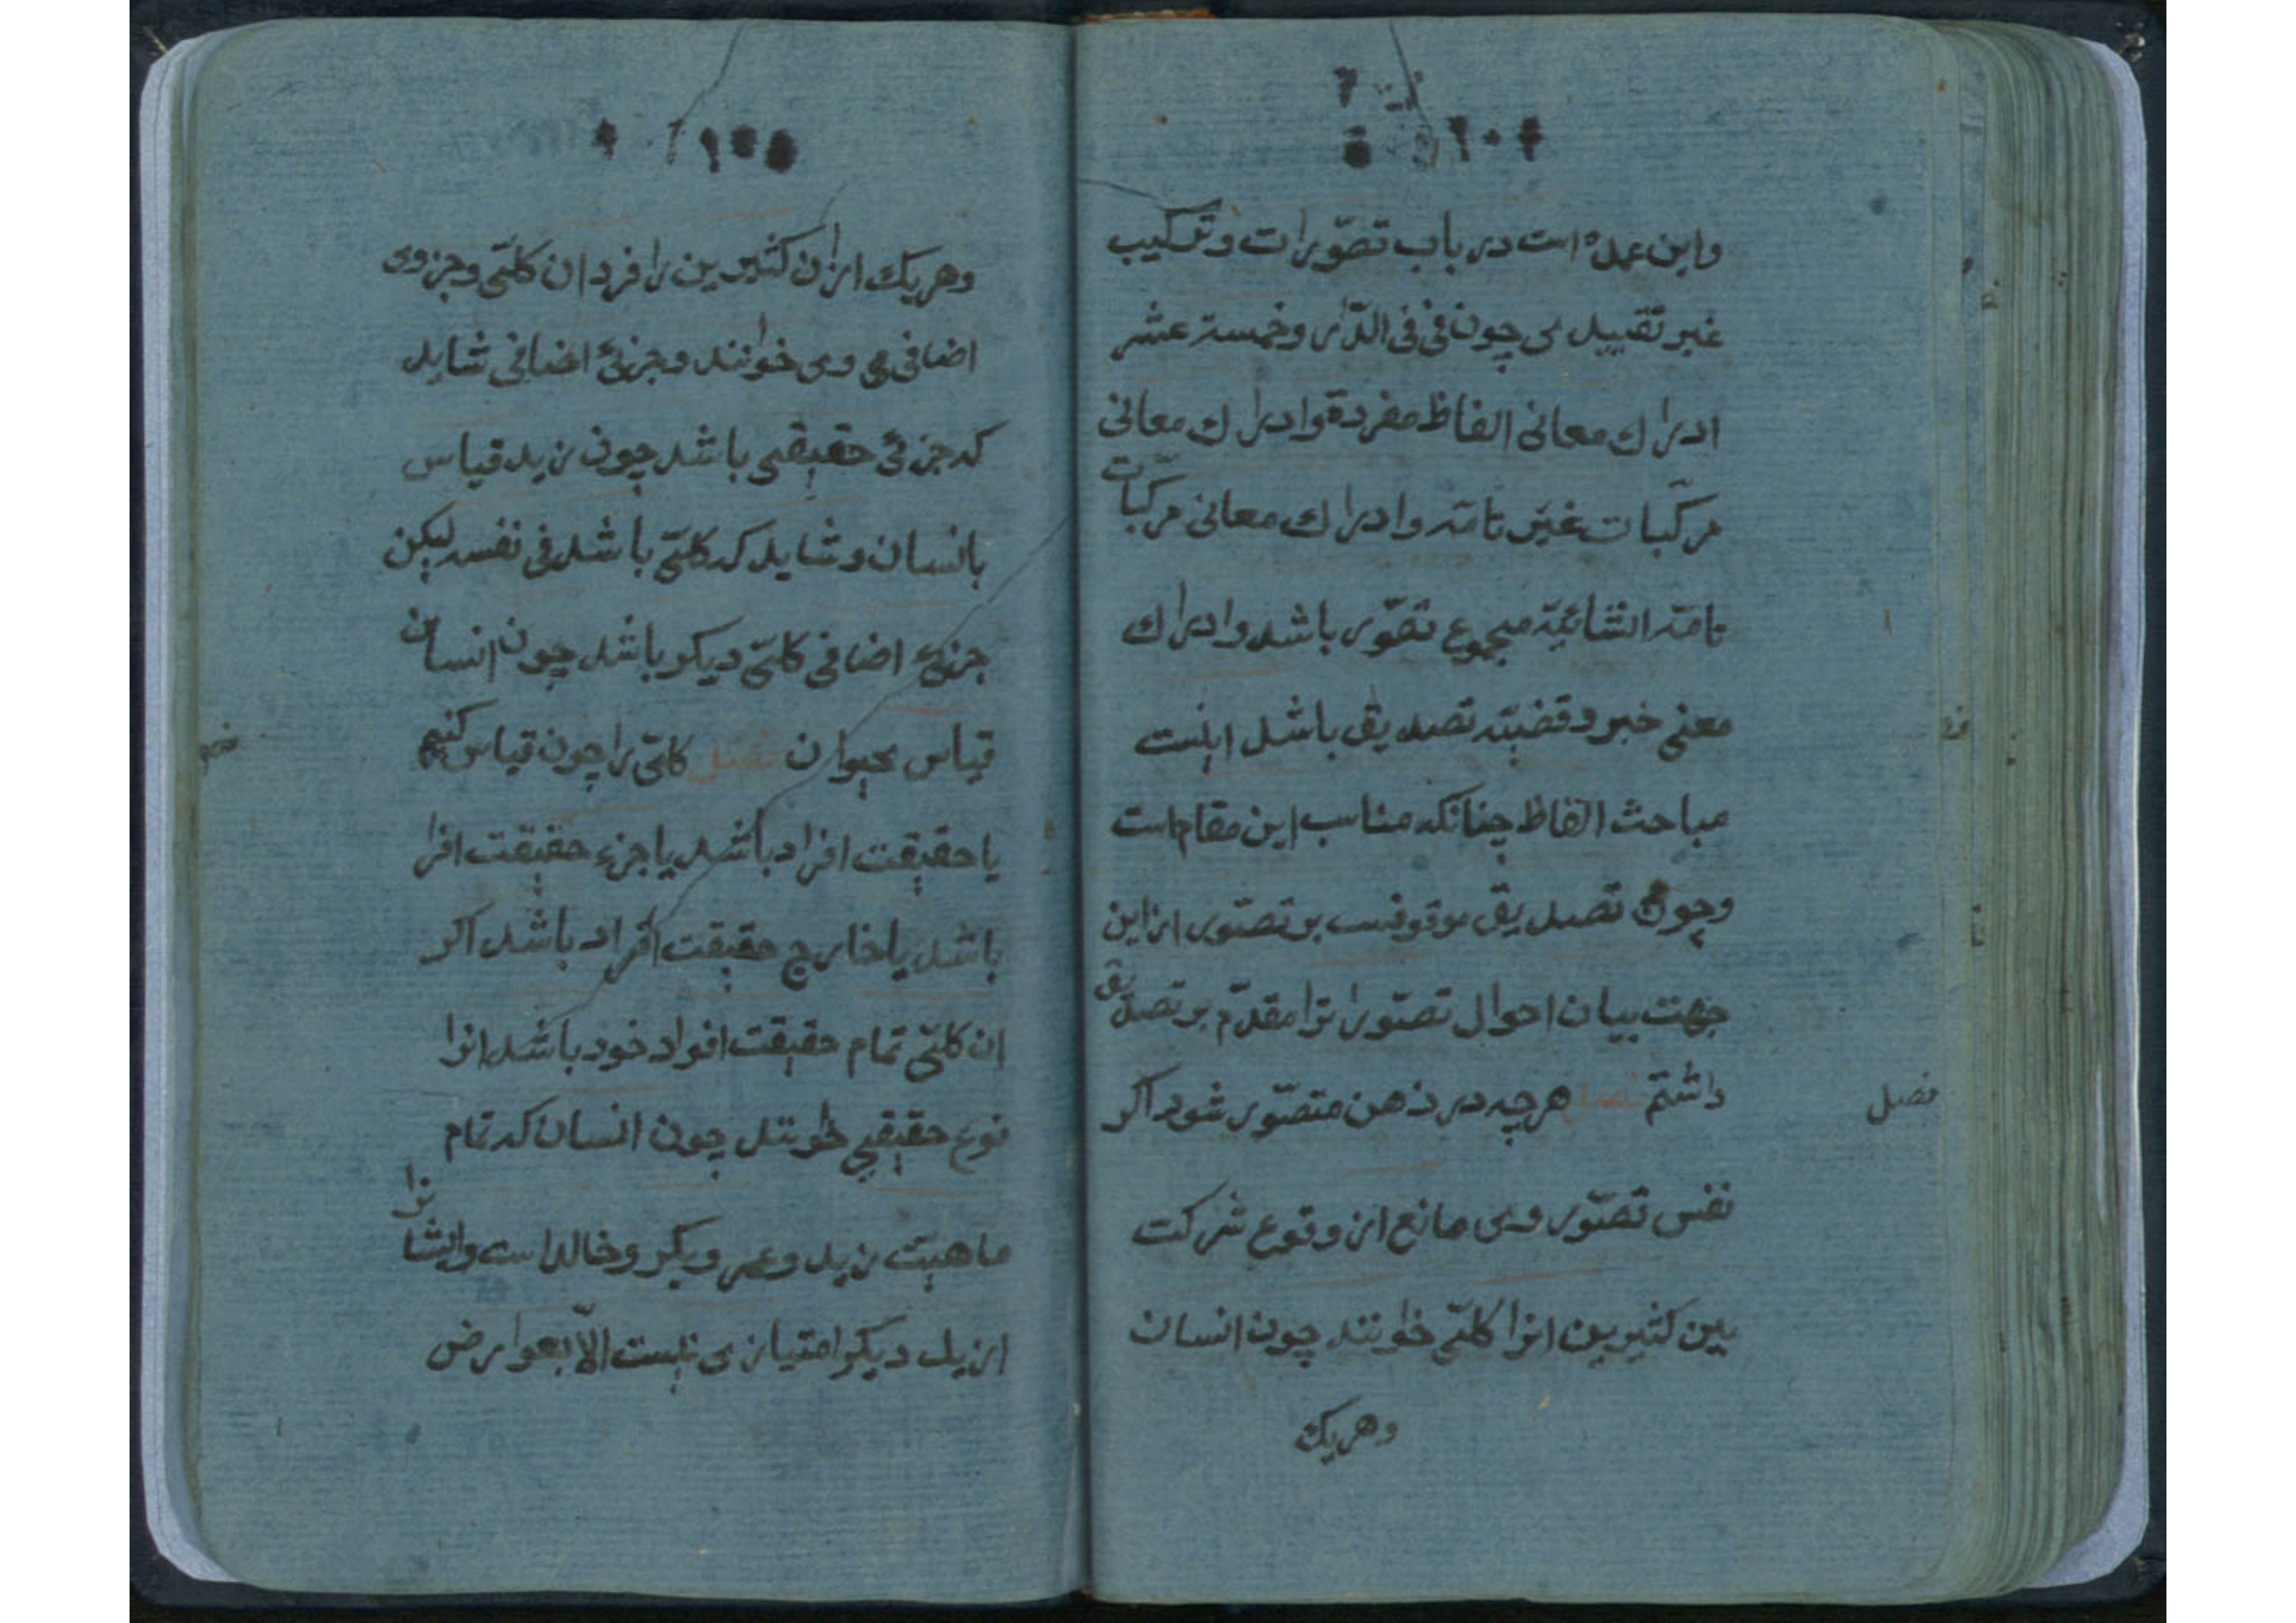 واین عمده است در باب تصوّرات وترکیب
غیر تقییدی چون فی فی الدّار وخمسة عشر
ادراك معانی الفاظ مفردة وادراك معانی
مرکّبات غیر تامّه وادراك معانی مرکّبات
تامّه انشائیّه مجموع تصوّر باشد وادراك
معنی خبر وقضیّه تصدیق باشد اینست
مباحث الفاظ چنانکه مناسب این مقام است
وچون تصدیق موقوفست بر تصوّر از این
جهت بیان احوال تصوّراترا مقدّم بر تصدیق
داشتم فصل هرچه در ذهن متصوّر شود اکر
فصل
نفس تصوّر وی مانع از وقوع شرکت
بین کثیرین انرا کلّی خوانند چون انسان
وهریك
وهریك ازان کثیرین را فرد ان کلّی وجزوی
اضافی می وی خوانند وجزئ اضافی شاید
که جزئی حقیقی باشد چون زید قیاس
بانسان وشاید که کلّی باشد فی نفسه لیکن
جزئ اضافی کلّی دیکر باشد چون انسان
قیاس بحیوان فصل کلّی را چون قیاس کنیم
یا حقیقت افراد باشد یا جزء حقیقت افرا
باشد یا خارج حقیقت افراد باشد اکر
ان کلّی تمام حقیقت افراد خود باشد انرا
نوع حقیقی خوانند چون انسان که تمام
ماهیّت زید وعمر وبکر وخالد است وایشانرا
از یك دیکر امتیازی نیست الّا بعوارض